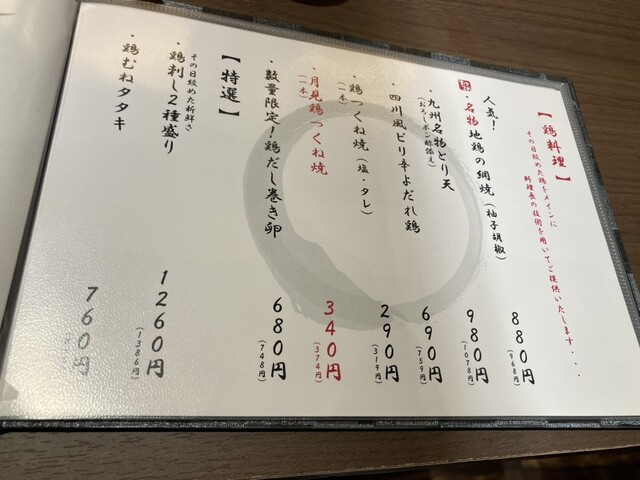 【鶏料理】
その日絞めた鶏をメインに
料理長の技術を用いてご提供いたします・・・
人気！
・名物地鶏の網焼（柚子胡椒） 880円（968円）
・九州名物とり天 980円（1078円）
（おろしポン酢添え）
・四川風ピリ辛よだれ鶏 690円（759円）
・鶏つくね焼（塩・タレ） 290円（319円）
（一本）
・月見鶏つくね焼 340円（374円）
（一本）
・数量限定！鶏だし巻き卵 680円（748円）
【特選】
その日絞めた新鮮さ
・鶏刺し2種盛り 1260円（1386円）
・鶏むねタタキ 760円